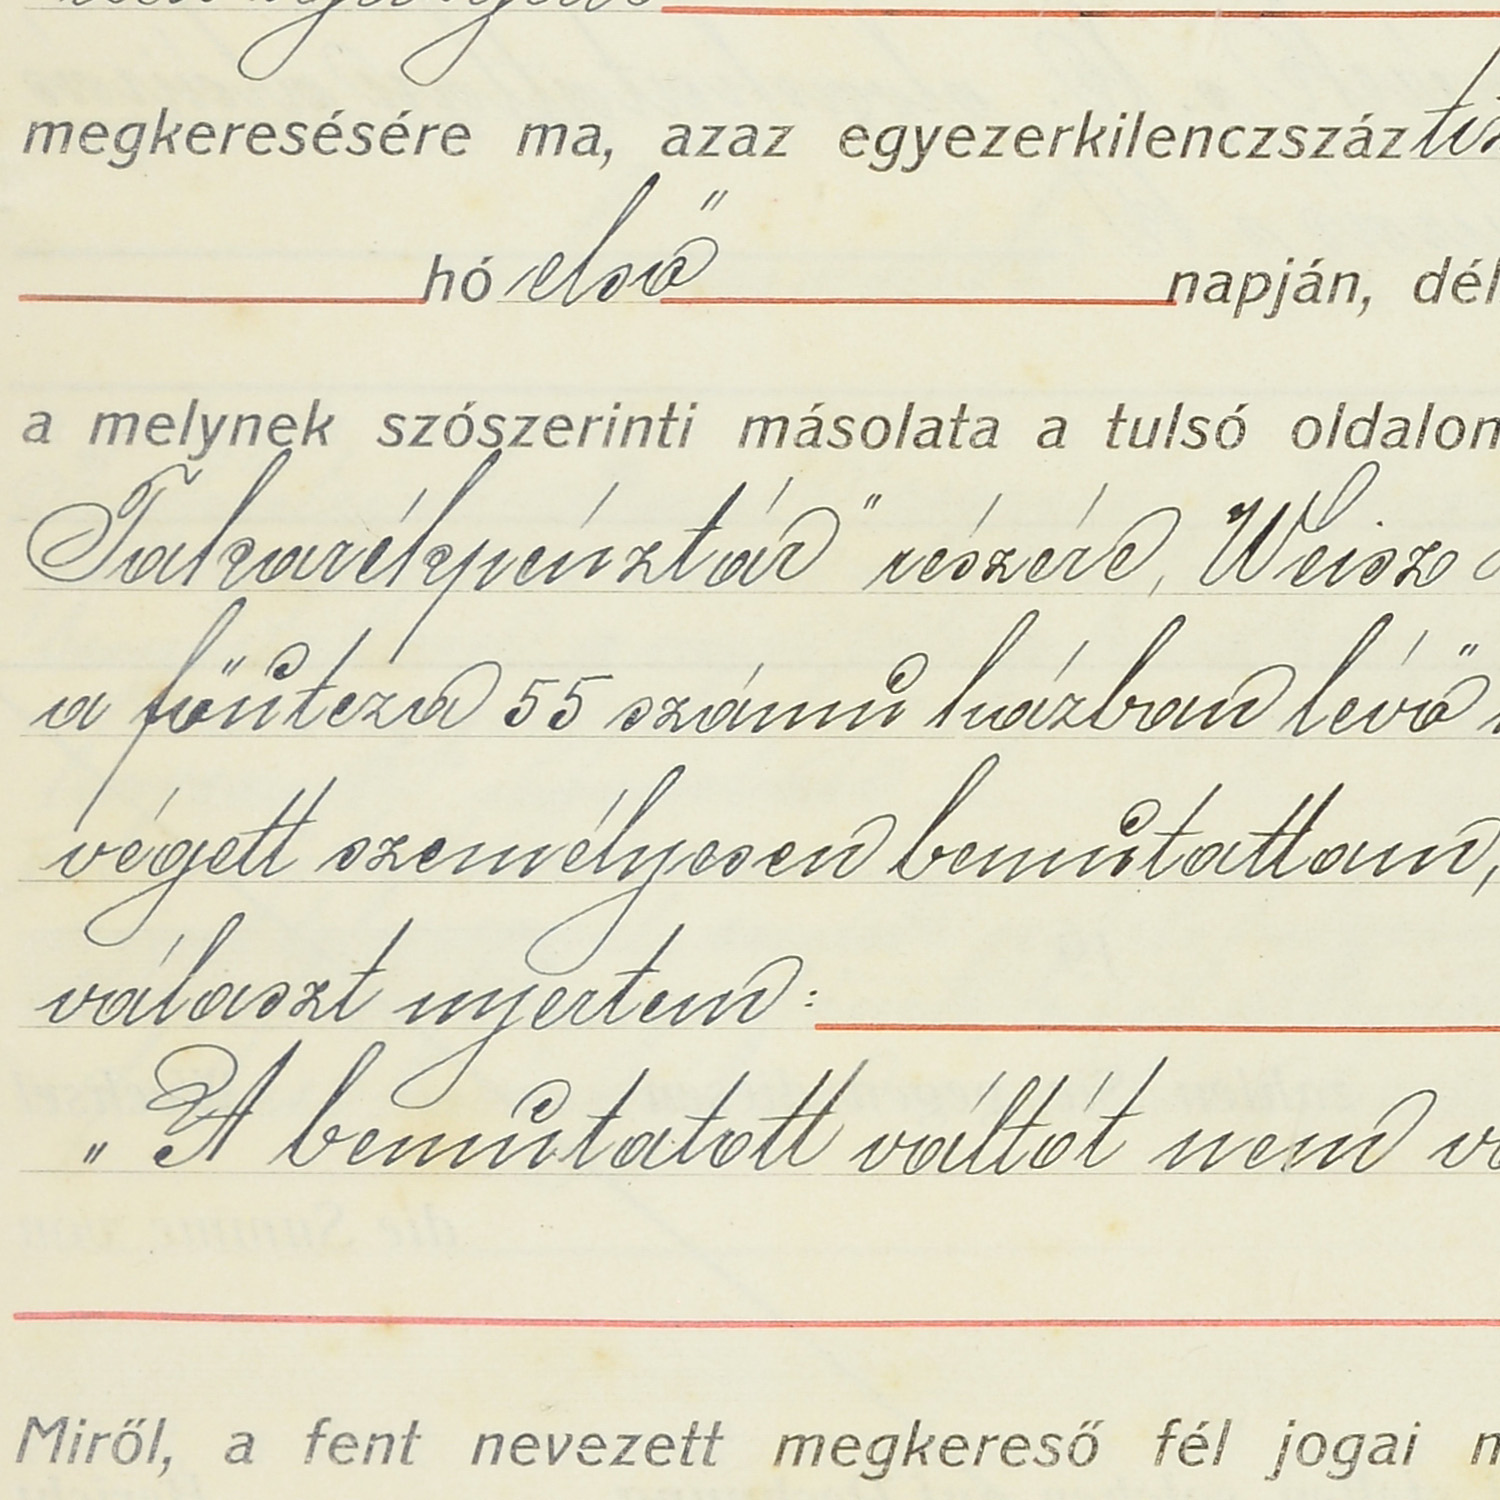 megkeresésére ma, azaz egyezerkilenczszáz
hó első napján, dél
a melynek szószerinti másolata a tulsó oldalon
Takarékpénztár" részére, Weisz
a főuteza 55 számu házban lévő
végett személyesen bemutattam,
választ nyertem:
„A bemutatott váltót nem
Miről, a fent nevezett megkereső fél jogai